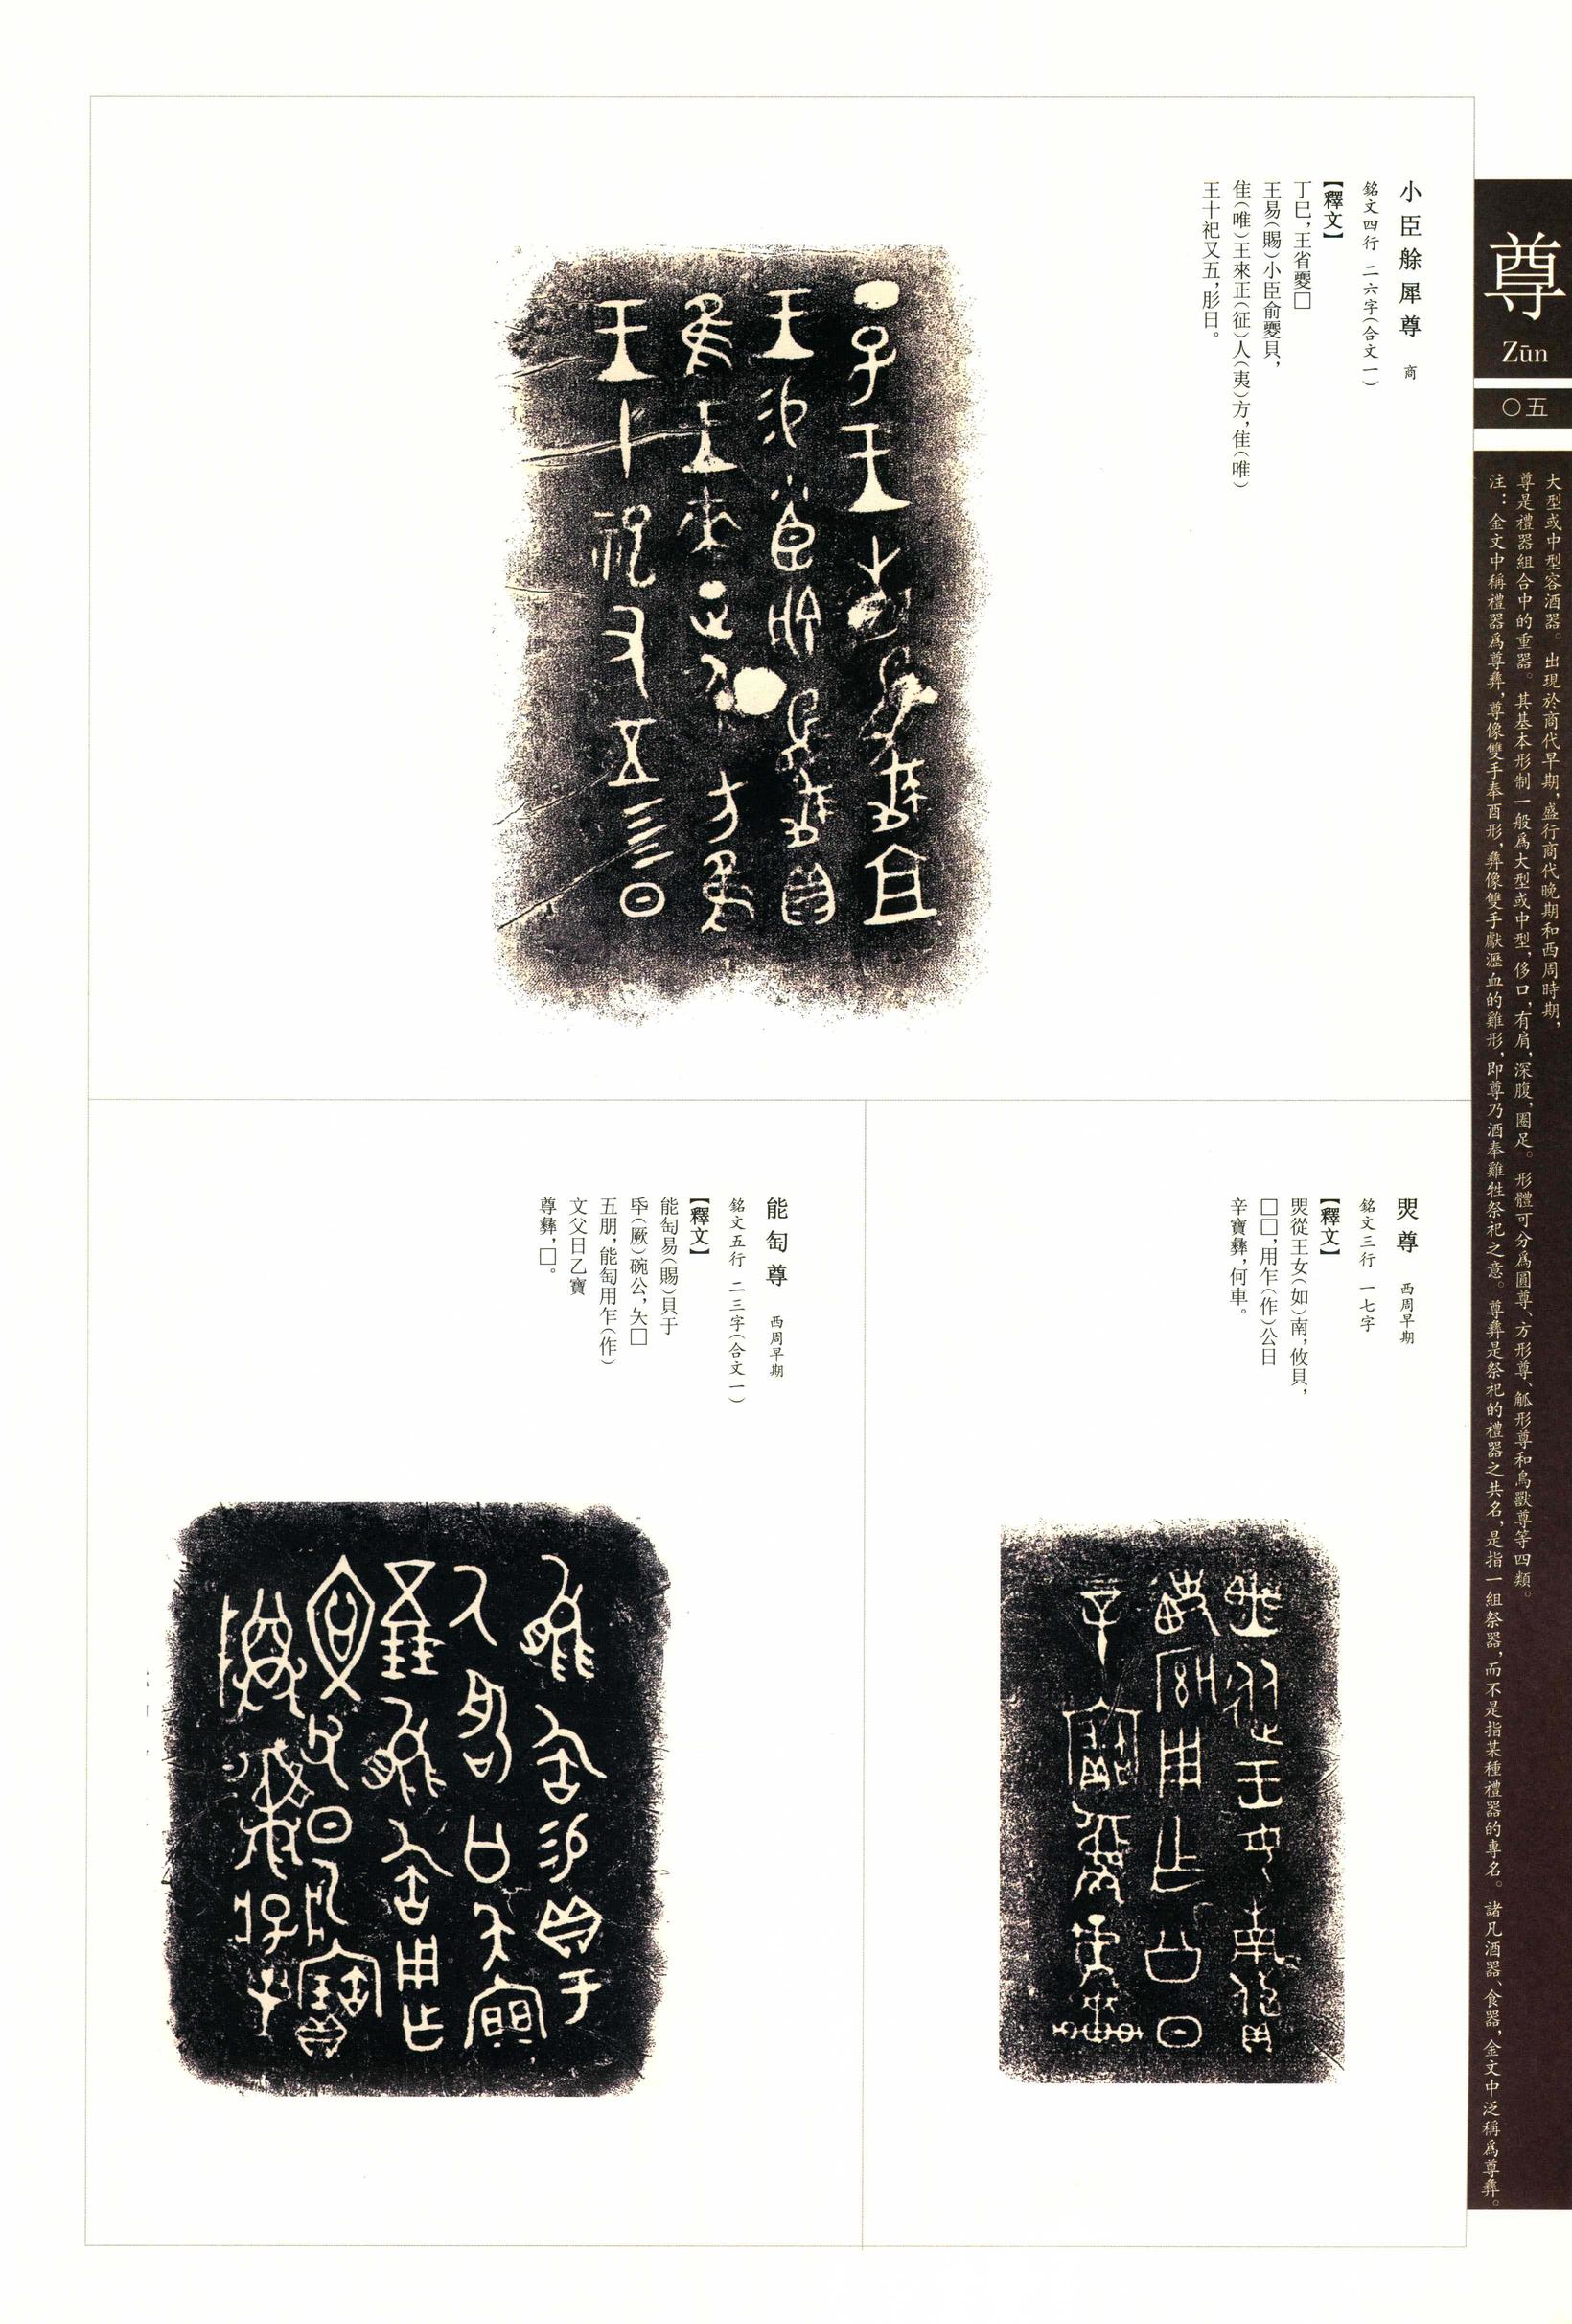 尊
Zūn
〇五
大型或中型容酒器。出現於商代早期，盛行商代晚期和西周時期，
尊是禮器組合中的重器。其基本形制一般爲大型或中型，侈口，有肩，深腹，圈足。形體可分爲圓尊、方形尊、觚形尊和鳥獸尊等四類。
注：金文中稱禮器爲尊彝，尊像雙手奉酉形，彝像雙手獻瀝血的雞形，即尊乃酒奉雞牲祭祀之意。尊彝是祭祀的禮器之共名，是指一組祭器，而不是指某種禮器的專名。諸凡酒器、食器，金文中泛稱爲尊彝。
小臣艅犀尊 商
銘文四行 二六字（合文一）
【釋文】
丁巳，王省夒□
王易（賜）小臣俞夒貝，
隹（唯）王來正（征）人（夷）方，隹（唯）
王十祀又五，肜日。
煛尊 西周早期
銘文三行 一七字
【釋文】
煛從王女（如）南，攸貝，
□□，用乍（作）公日
辛寶彝，何車。
能匋尊 西周早期
銘文五行 二三字（合文一）
【釋文】
能匋易（賜）貝于
氒（厥）碗公，夨□
五朋，能匋用乍（作）
文父日乙寶
尊彝，□。